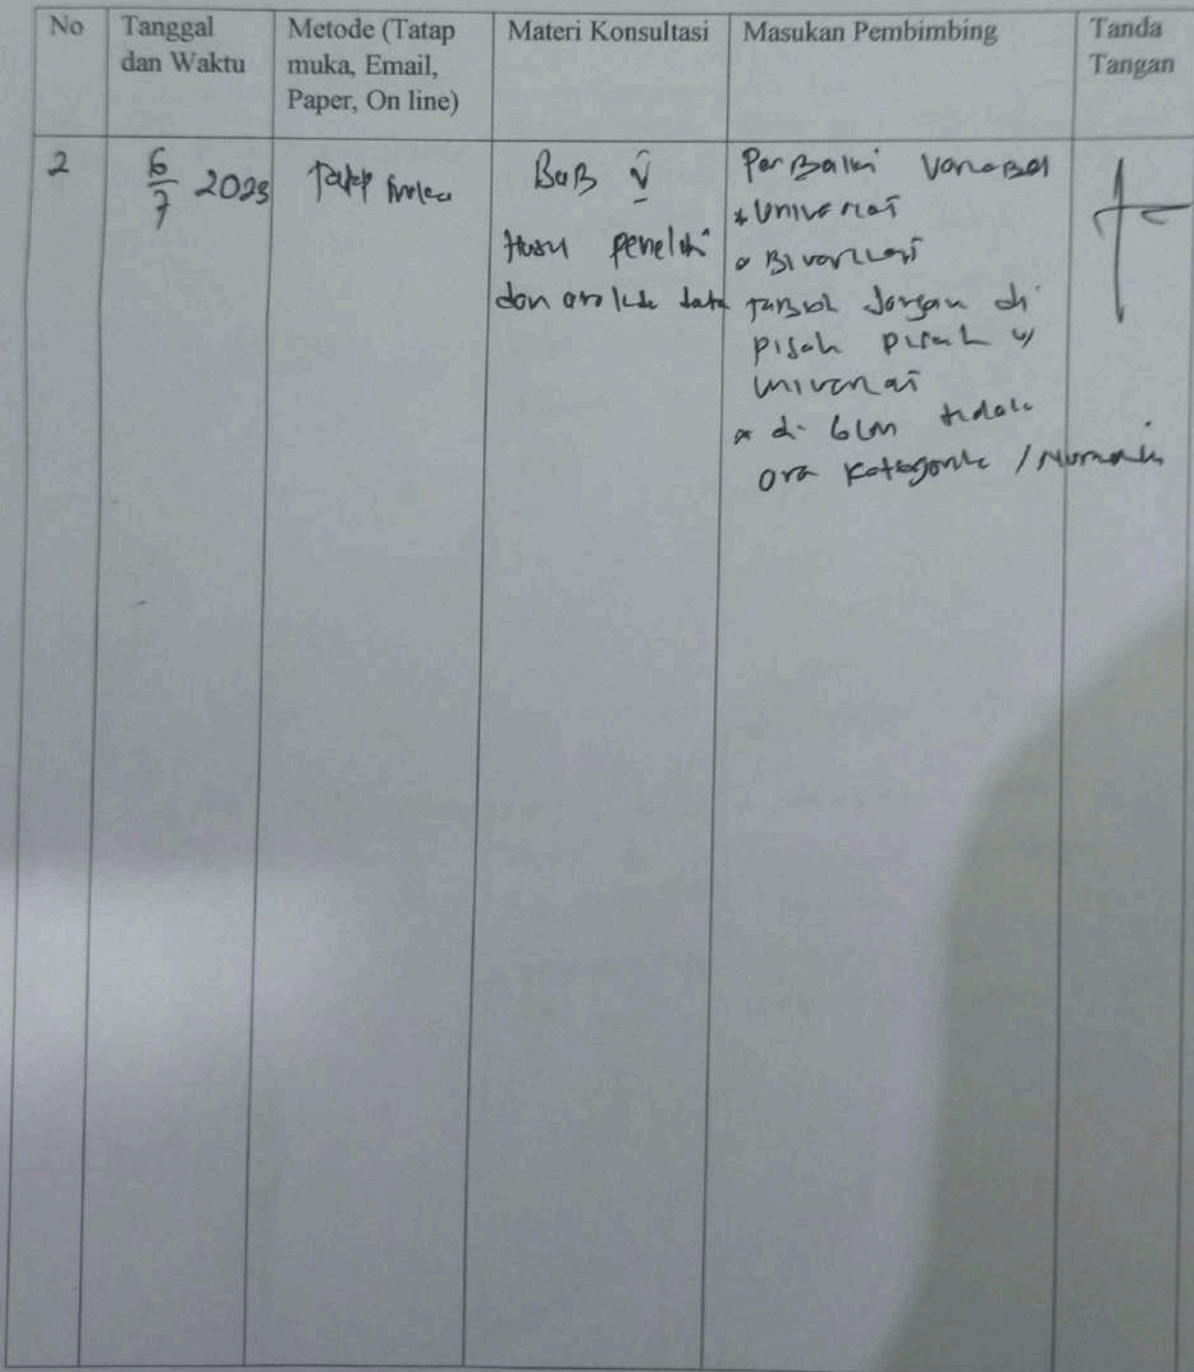 No
Tanggal
dan Waktu
Metode (Tatap
muka, Email,
Paper, On line)
Materi Konsultasi
Masukan Pembimbing
Tanda
Tangan
2
6/7 2023
Tatap muka
BAB V
Hasil peneliti
dan data
Perbaiki Variabel
* Univariat
* Bivariat
jangan di
pisah pisah
univariat
* di tidak
ora kategorik / Numerik